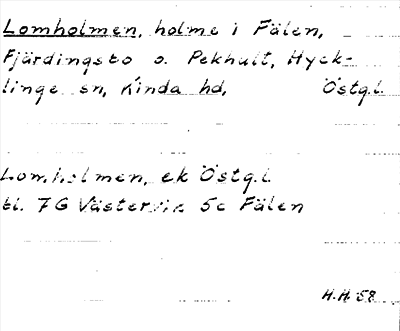 Lomholmen, holme i Fälen,
Fjärdingsbo o. Pekhult, Hyck-
linge sn, Kinda hd, Östg.l.
Lomholmen, ek Östg.l.
bl. 7G Västervik 5c Fälen
H.H. 58